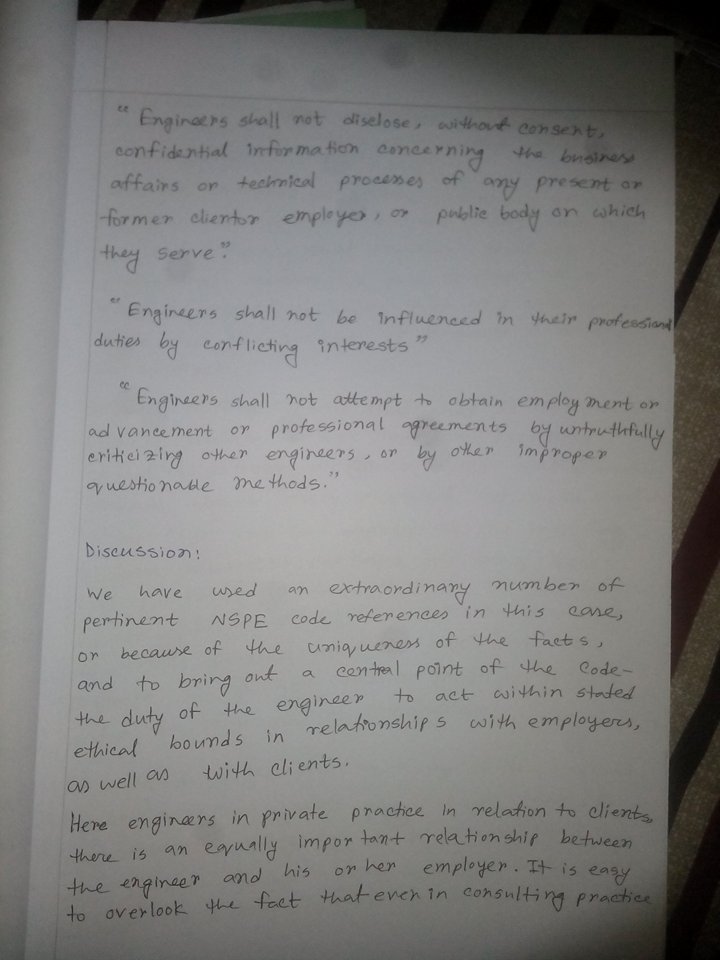 "Engineers shall not disclose, without consent,
confidential information concerning the business
affairs or technical processes of any present or
former clientor employer, or public body on which
they serve".
"Engineers shall not be influenced in their professional
duties by conflicting interests"
"Engineers shall not attempt to obtain employment or
advancement or professional agreements by untruthfully
criticizing other engineers, or by other improper
questionable methods."
Discussion:
We have used an extraordinary number of
pertinent NSPE code references in this case,
or because of the uniqueness of the facts,
and to bring out a central point of the Code-
the duty of the engineer to act within stated
ethical bounds in relationships with employers,
as well as with clients.
Here engineers in private practice in relation to clients,
there is an equally important relationship between
the engineer and his or her employer. It is easy
to overlook the fact that even in consulting practice